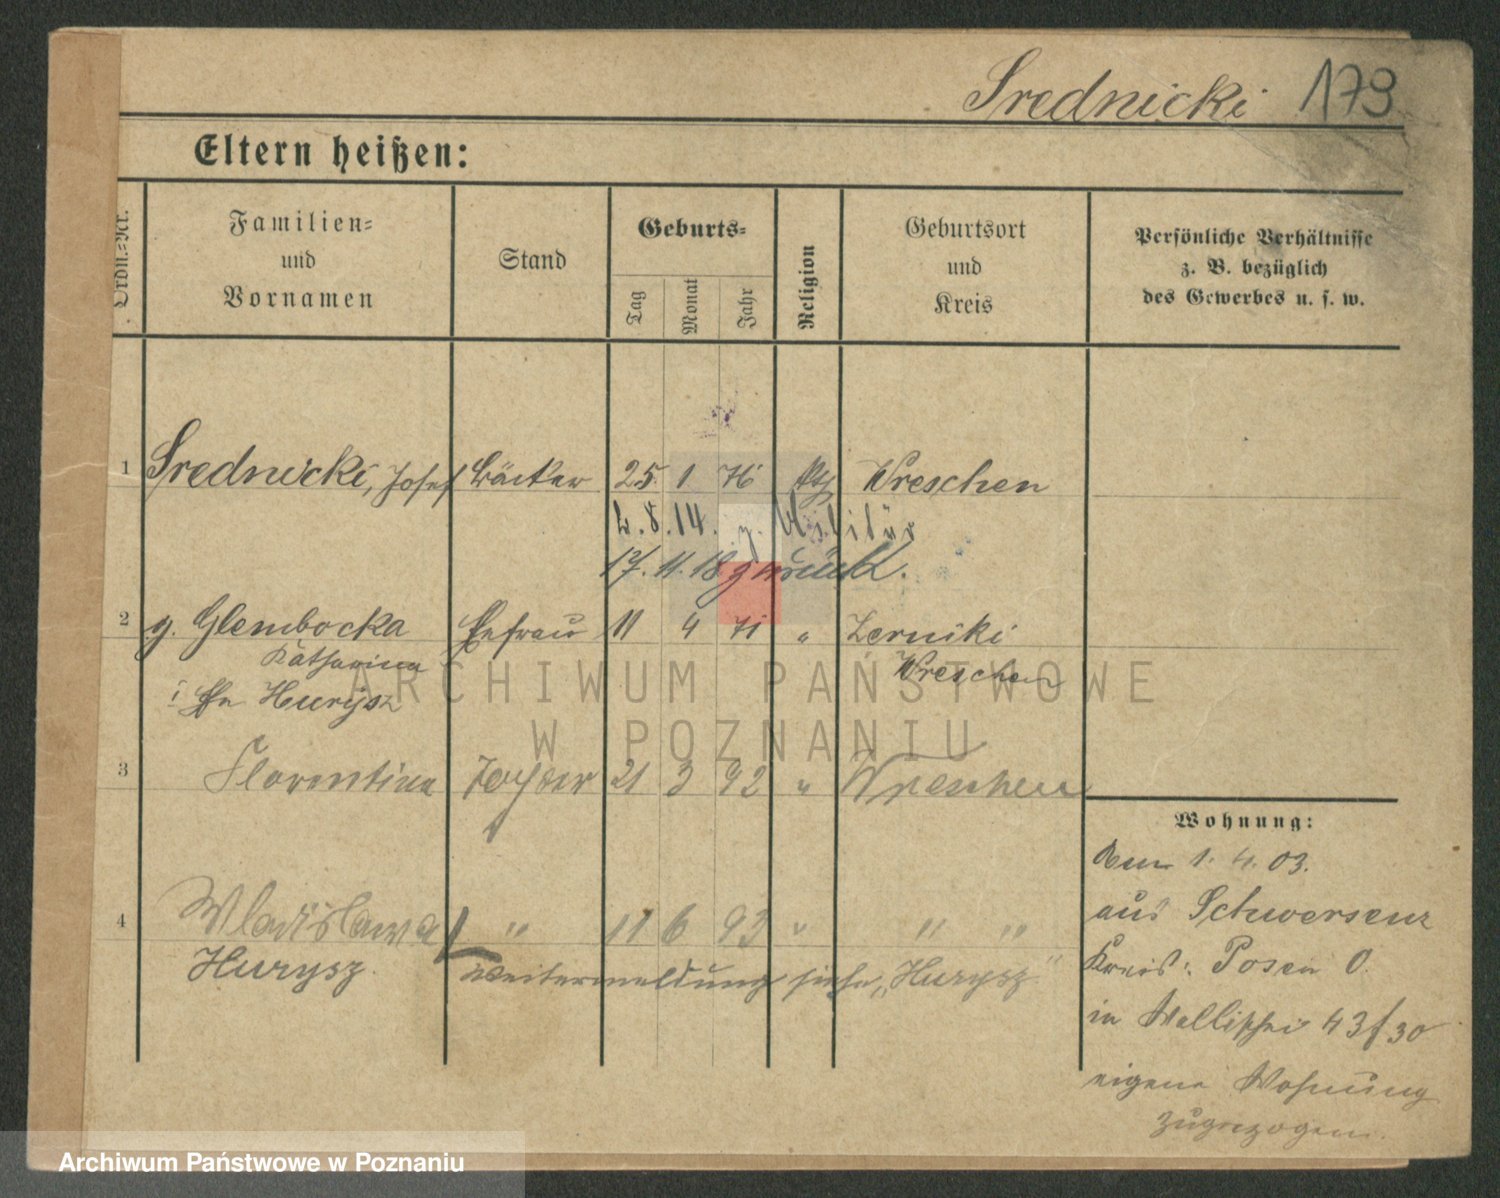 Srednicki 179
Eltern heißen:
Ordn.-Nr.
Familien-
und
Vornamen
Stand
Geburts-
Tag Monat Jahr
Religion
Geburtsort
und
Kreis
Persönliche Verhältnisse
z. B. bezüglich
des Gewerbes u. s. w.
1 Srednicki, Josef Bäcker 25. 1 76 Wreschen
2.8.14. z. Militär
17.11.18 zurück.
2 g. Glembocka Ehefrau 11 4 71 " Zerniki
Katharina Wreschen
Hurysz
3 Florentine Tochter 21 3 92 " Wreschen
4 Wladislawa " 11 6 93 " " "
Hurysz. Weitermeldung siehe „Hurysz"
Wohnung:
Am 1.4.03.
aus Schwersenz
Kreis: Posen O.
in Wallischei 43 f 30
eigene Wohnung
zugezogen.
ARCHIWUM PAŃSTWOWE
W POZNANIU
Archiwum Państwowe w Poznaniu